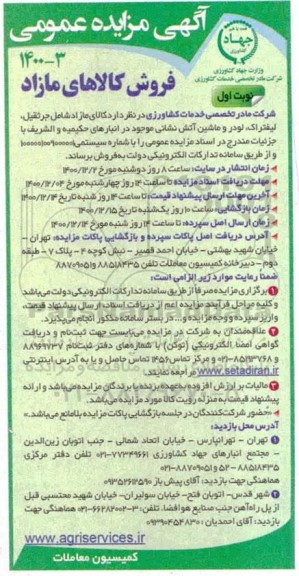 آگهی مزایده عمومی
جهاد
وزارت جهاد کشاورزی
شرکت مادر تخصصی خدمات کشاورزی
۱۴۰۰-۳
فروش کالاهای مازاد
نوبت اول
شرکت مادر تخصصی خدمات کشاورزی در نظر دارد کالای مازاد شامل جرثقیل،
لیفتراک، لودر و ماشین آتش نشانی موجود در انبارهای حکیمیه و الشریف با
جزئیات مندرج در اسناد مزایده عمومی را با شماره سیستمی
و از طریق سامانه تدارکات الکترونیکی دولت به فروش برساند.
زمان انتشار در سایت: ساعت ۸ روز دوشنبه مورخ ۱۴۰۰/۱۲/۲
مهلت دریافت اسناد مزایده: تا ساعت ۱۴ روز چهارشنبه مورخ ۱۴۰۰/۱۲/۰۴
آخرین مهلت ارسال پیشنهاد قیمت: تا ساعت ۱۴ روز شنبه تاریخ ۱۴۰۰/۱۲/۱۴
زمان بازگشایی: ساعت ۱۰ روز یک‌شنبه تاریخ ۱۴۰۰/۱۲/۱۵
زمان ارسال اصل سپرده: تا ساعت ۱۴ روز شنبه مورخ ۱۴۰۰/۱۲/۱۴
آدرس دریافت اصل پاکات سپرده و بازگشایی پاکات مزایده: تهران -
خیابان شهید بهشتی - خیابان احمد قصیر - نبش کوچه ۴ - پلاک ۷ - طبقه
دوم - دبیرخانه کمیسیون معاملات تلفن ۸۸۵۱۸۴۳۵ و ۸۸۷۰۹۰۵۱
ضمنا رعایت موارد زیر الزامی است:
۱ برگزاری مزایده صرفا از طریق سامانه تدارکات الکترونیکی دولت می‌باشد
و کلیه مراحل فرآیند مزایده اعم از دریافت اسناد، ارسال پیشنهاد قیمت،
واریز سپرده و وجه مزایده و... در بستر سامانه مذکور انجام می‌پذیرد.
۲ علاقه‌مندان به شرکت در مزایده می‌بایست جهت ثبت‌نام و دریافت
گواهی امضا الکترونیکی (توکن) با شماره‌های دفتر ثبت‌نام ۸۸۹۶۹۷۳۷
و ۸۵۱۹۳۷۶۸-۰۲۱ و مرکز تماس ۱۴۵۶ تماس حاصل و یا به آدرس اینترنتی
www.setadiran.ir مراجعه نمایند.
۳ مالیات بر ارزش افزوده به عهده برنده یا برندگان مزایده می‌باشد و ارائه
پیشنهاد قیمت به منزله رویت کالا مورد مزایده می‌باشد.
حضور شرکت‌کنندگان در جلسه بازگشایی پاکات مزایده بلامانع می‌باشد.
آدرس محل بازدید:
۱ تهران - تهرانپارس - خیابان اتحاد شمالی - جنب اتوبان زین‌الدین
- مجتمع انبارهای جهاد کشاورزی ۷۷۳۴۹۶۶۱-۰۲۱ تلفن دفتر مرکزی
۸۸۵۱۸۴۳۵ - ۵۲ و ۸۸۷۰۹۰۵۱-۰۲۱
هماهنگی جهت بازدید: آقای پیش باز ۰۹۳۵۲۶۱۲۵۹۰
۲ شهر قدس - اتوبان فتح - خیابان سولیران - خیابان شهید محتسبی قبل
از پل راه آهن جنب صنایع هوا فضا. تلفن ۳-۶۶۲۸۲۰۰۲-۰۲۱ هماهنگی جهت
بازدید: آقای احمدیان: ۰۹۳۹۰۴۵۴۸۳۰
www.agriservices.ir
کمیسیون معاملات